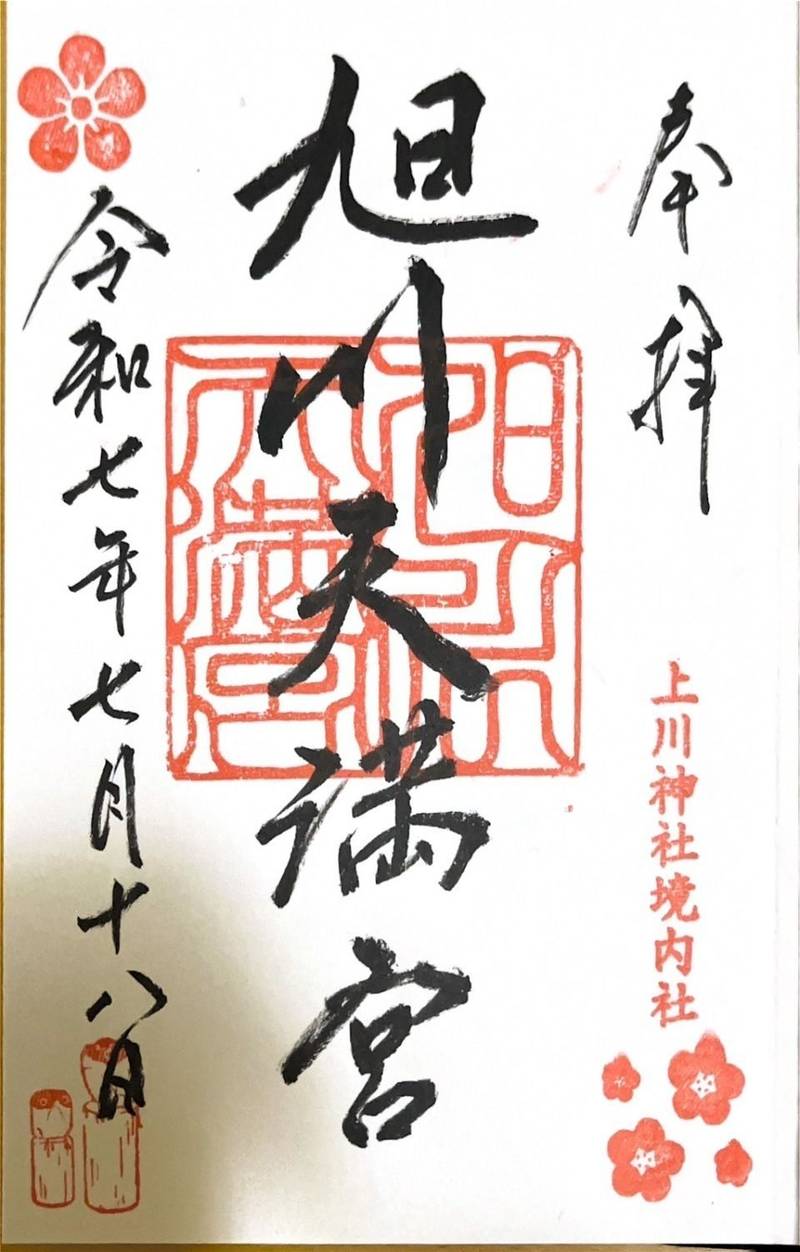 奉拝
上川神社境内社
旭川天満宮
旭川天満宮
令和七年七月十八日